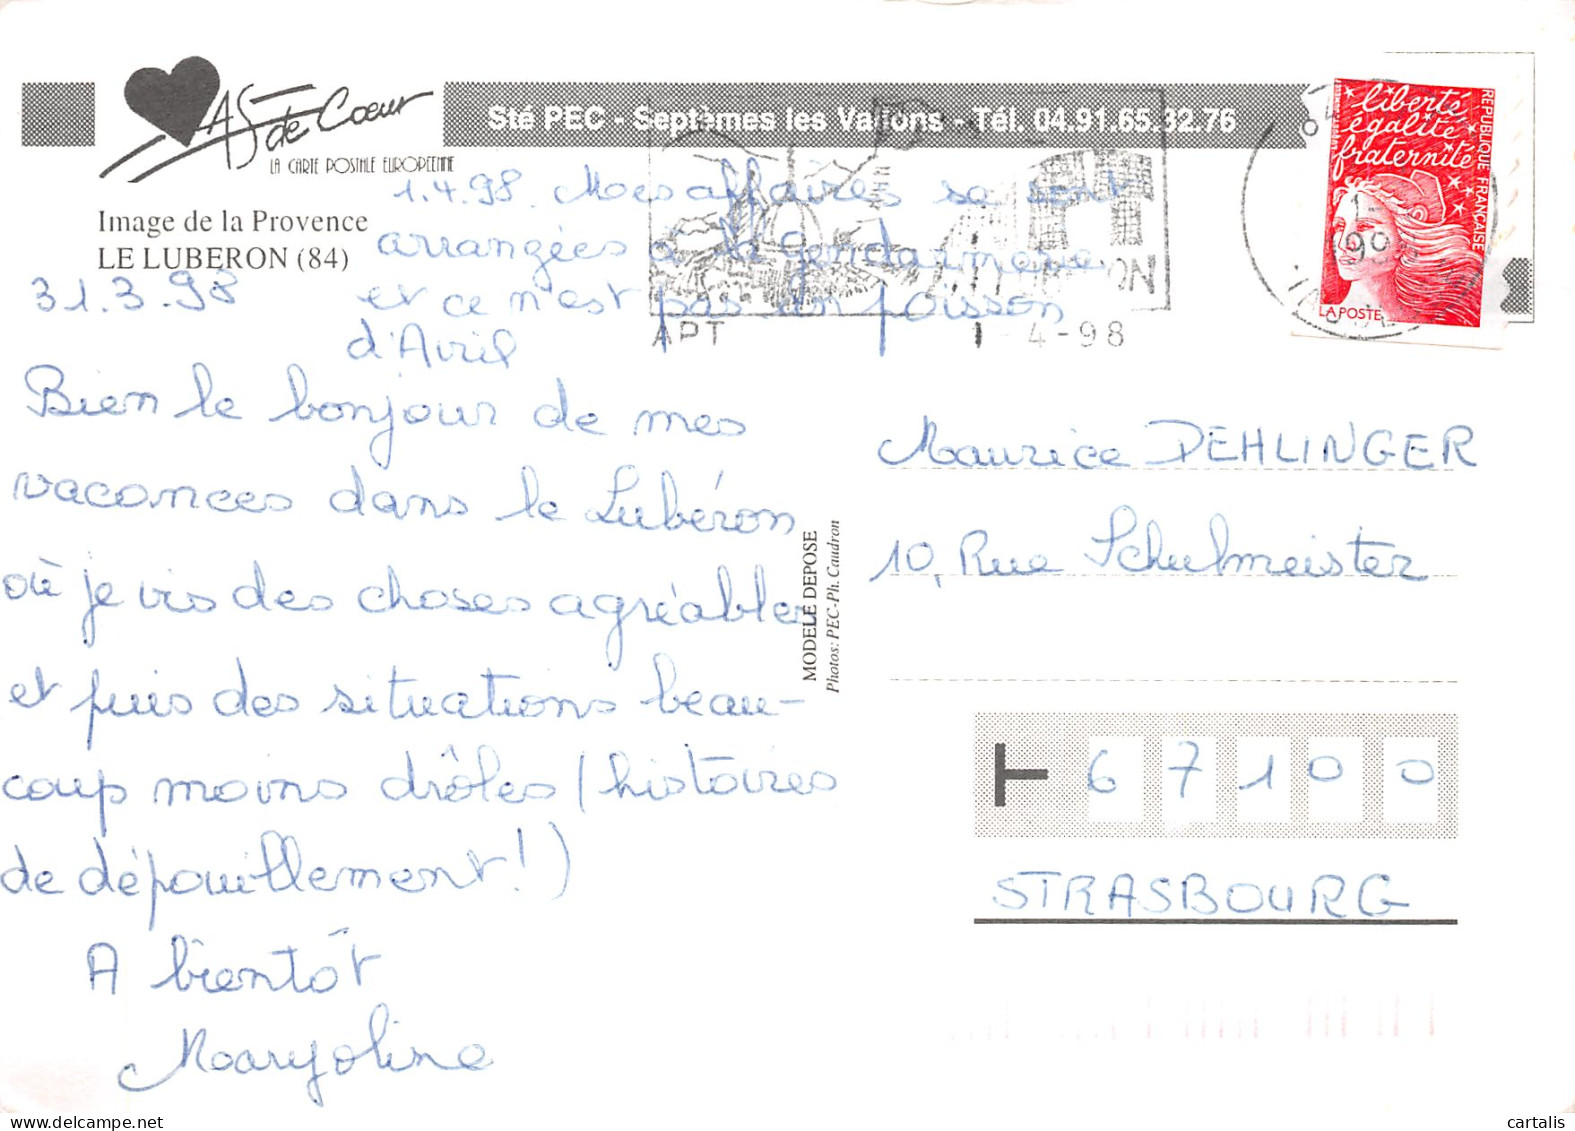 AS de Cœur
LA CARTE POSTALE EUROPEENNE
Sté PEC - Septèmes les Vallons - Tél. 04.91.65.32.76
Image de la Provence
LE LUBERON (84)
liberté
égalité
fraternité
REPUBLIQUE FRANÇAISE
LA POSTE
APT 1-4-98
1.4.98. Mes affaires se sont
arrangées à la gendarmerie
et ce n'est pas un poisson
d'Avril
31.3.98
Bien le bonjour de mes
vacances dans le Lubéron
où je vis des choses agréables
et puis des situations beau-
coup moins drôles (histoires
de dépouillement!)
A bientôt
Maryoline
MODELE DEPOSE
Photos: PEC-Ph. Caudron
Maurice DEHLINGER
10, Rue Schulmeister
67100
STRASBOURG
cartalis